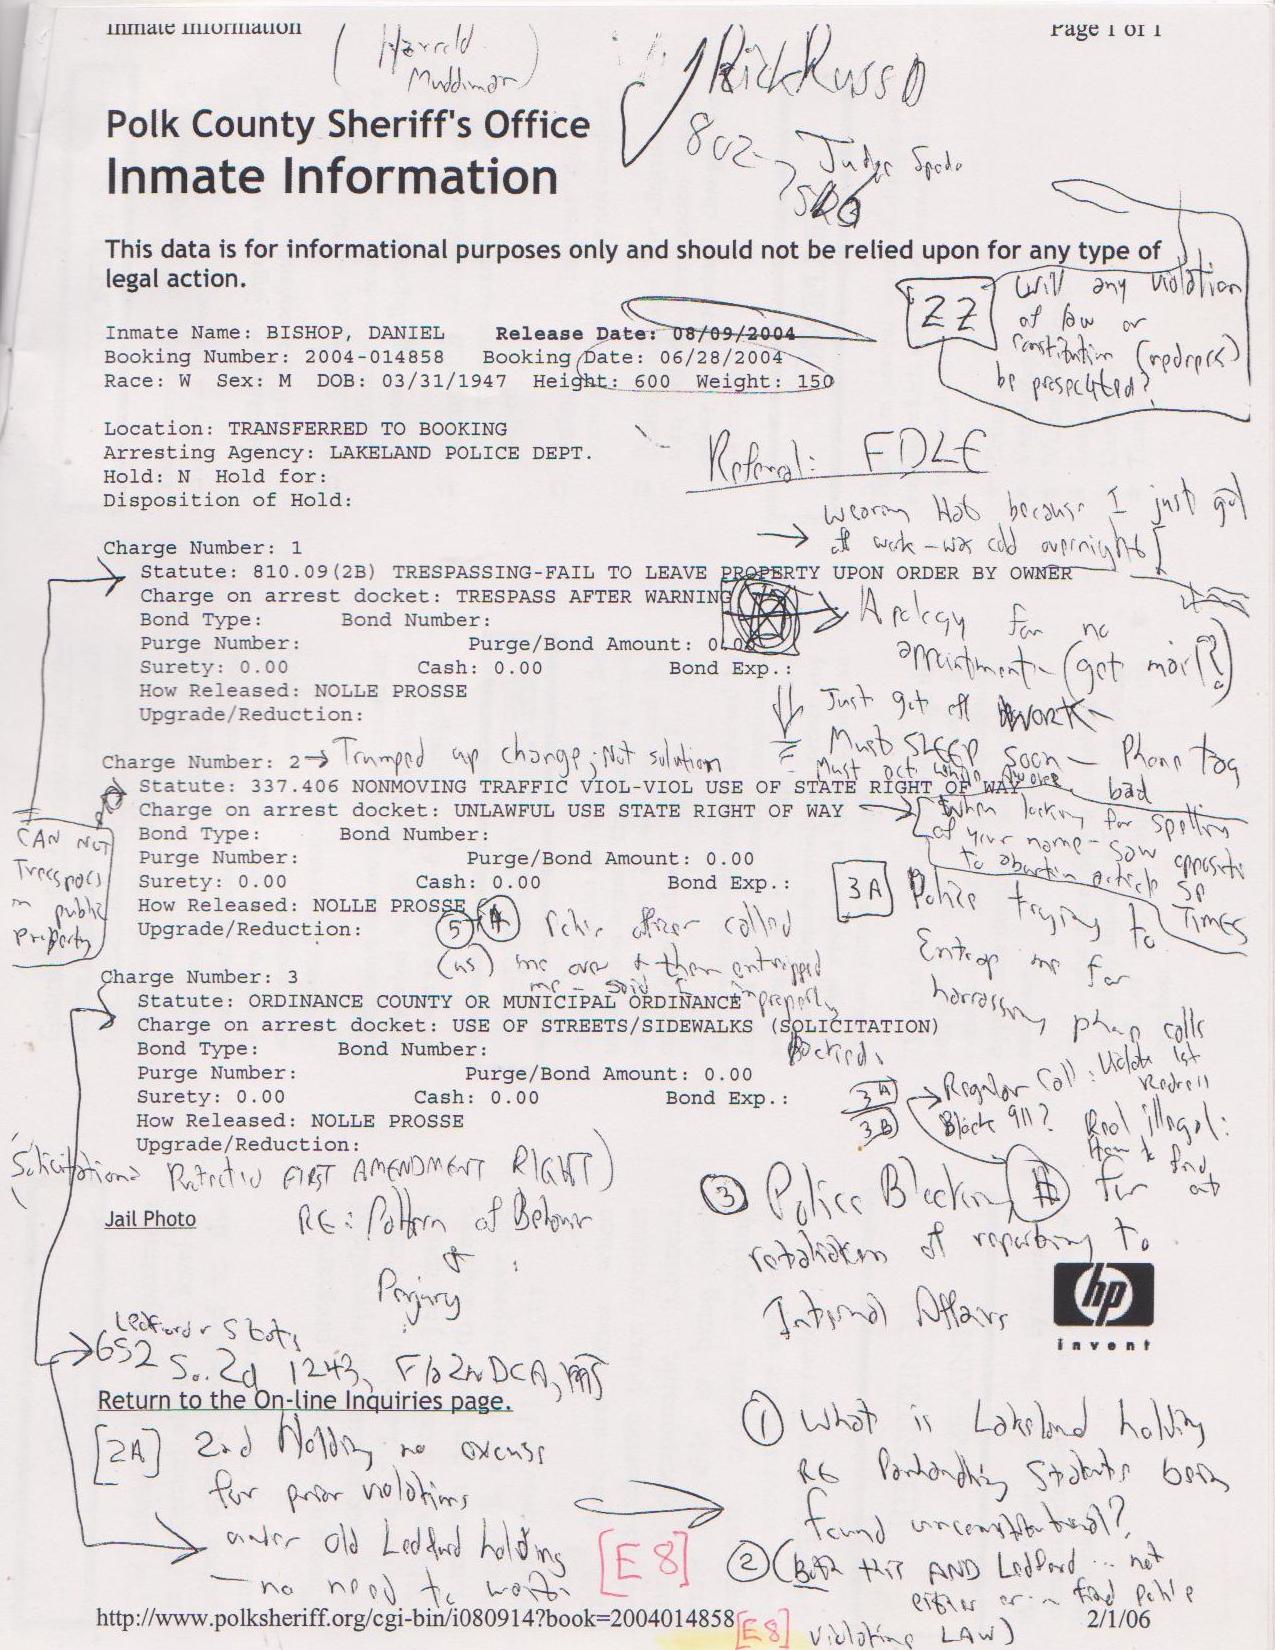 Inmate Information
Page 1 of 1
(Harrold
Muddiman)
Rick Russo
802-
Judge
Polk County Sheriff's Office
Inmate Information
This data is for informational purposes only and should not be relied upon for any type of
legal action.
ZZ
Will any violation
of law or
constitution (redress)
be prosecuted?
Inmate Name: BISHOP, DANIEL Release Date: 08/09/2004
Booking Number: 2004-014858 Booking Date: 06/28/2004
Race: W Sex: M DOB: 03/31/1947 Height: 600 Weight: 150
Location: TRANSFERRED TO BOOKING
Arresting Agency: LAKELAND POLICE DEPT.
Hold: N Hold for:
Disposition of Hold:
Referral: FDLE
wearing Hat because I just got
off work - was cold overnight
Charge Number: 1
Statute: 810.09(2B) TRESPASSING-FAIL TO LEAVE PROPERTY UPON ORDER BY OWNER
Charge on arrest docket: TRESPASS AFTER WARNING
Bond Type: Bond Number:
Purge Number: Purge/Bond Amount: 0.00
Surety: 0.00 Cash: 0.00 Bond Exp.:
How Released: NOLLE PROSSE
Upgrade/Reduction:
Apology for no
appointment - (get mail?)
Just got off WORK -
Must SLEEP soon - Phone tag
bad
Charge Number: 2 → Trumped up charge; Not solution
Statute: 337.406 NONMOVING TRAFFIC VIOL-VIOL USE OF STATE RIGHT OF WAY
Charge on arrest docket: UNLAWFUL USE STATE RIGHT OF WAY
Bond Type: Bond Number:
Purge Number: Purge/Bond Amount: 0.00
Surety: 0.00 Cash: 0.00 Bond Exp.:
How Released: NOLLE PROSSE
Upgrade/Reduction:
When looking for spelling
of your name - saw opposite
to abortion article SP
TIMES
CAN NOT
Trespass
in public
Property
3A Police trying to
Entrap me for
harrassing phone calls
5 4 Police officer called
(us) me over & then entrapped
me - said I improperly
Parked.
Charge Number: 3
Statute: ORDINANCE COUNTY OR MUNICIPAL ORDINANCE
Charge on arrest docket: USE OF STREETS/SIDEWALKS (SOLICITATION)
Bond Type: Bond Number:
Purge Number: Purge/Bond Amount: 0.00
Surety: 0.00 Cash: 0.00 Bond Exp.:
How Released: NOLLE PROSSE
Upgrade/Reduction:
3A
3B
Regular Call: Violate 1st
Redress
Block 911? Real illegal:
How to find
out
(Solicitation= Protected FIRST AMENDMENT RIGHT)
Jail Photo
RE: Pattern of Behavior
&
Perjury
3 Police Blocking # for
retaliation of reporting to
Internal Affairs
hp
invent
Ledford v State,
652 So. 2d 1243, Fla 2nd DCA, 1995
Return to the On-line Inquiries page.
[2A] 2nd Holding no excuse
for prior violations
under old Ledford holding
- no need to wait
1 What is Lakeland holding
RE Panhandling Statutes being
found unconstitutional?
2 (Both this AND Ledford... not
either or - find police
violating LAW)
[E8]
http://www.polksheriff.org/cgi-bin/i080914?book=2004014858
[E8]
2/1/06